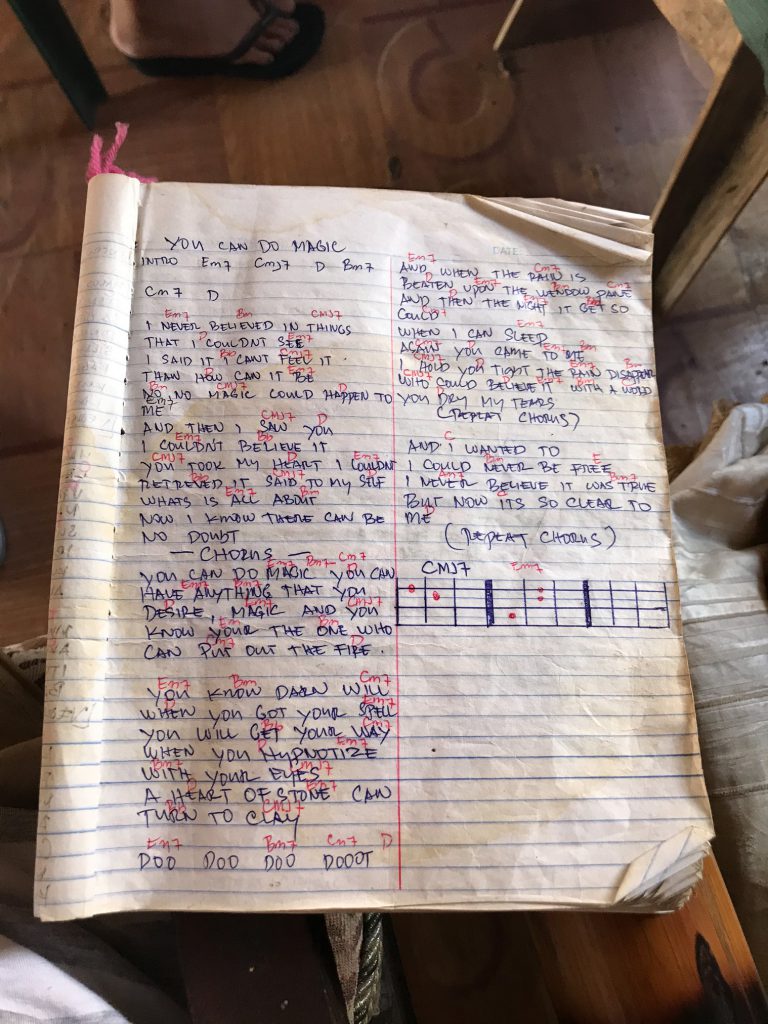 YOU CAN DO MAGIC
INTRO Em7 CMJ7 D Bm7
Cm7 D
Em7 Bm CMJ7
I NEVER BELIEVED IN THINGS
D Em7
THAT I COULDNT SEE
Bb CMJ7
I SAID IT I CANT FEEL IT.
D Em7
THAN HOW CAN IT BE
Bm CMJ7 D
NO NO MAGIC COULD HAPPEN TO
Em7
ME
CMJ7 D
AND THEN I SAW YOU
Em7 Bb
I COULDNT BELIEVE IT
CMJ7 D Em7
YOU TOOK MY HEART I COULDNT
Bm
RETRIEVED IT SAID TO MY SELF
Em7 Bm
WHATS IS ALL ABOUT
NOW I KNOW THERE CAN BE
NO DOUBT
— CHORUS —
Em7 Bm7 Cm7
YOU CAN DO MAGIC YOU CAN
Em7 Bm7 D
HAVE ANYTHING THAT YOU
D CMJ7
DESIRE, MAGIC AND YOU
Em Bm
KNOW YOUR THE ONE WHO
Cm7 D
CAN PUT OUT THE FIRE.
Em7 Bm Cm7
YOU KNOW DARN WILL
D Em7
WHEN YOU GOT YOUR SPELL
Bb Cm7
YOU WILL GET YOUR WAY
D Em7
WHEN YOU HYPNOTIZE
Bm7 CMJ7
WITH YOUR EYES
D Em7
A HEART OF STONE CAN
Bb CMJ7
TURN TO CLAY
Em7 Bm7 Cm7 D
DOO DOO DOO DOOOT
DATE
Em7 Cm7
AND WHEN THE RAIN IS
D Em7 Bm Cm7
BEATEN UPON THE WENDOW PANE
D
AND THEN THE NIGHT IT GET SO
COULD
Em7
WHEN I CAN SLEEP
Em7 Bm
AGAIN YOU CAME TO ME
CMJ7 D Em7 Bm
I HOLD YOU TIGHT THE RAIN DISAPPEAR
CMJ7 D Em7 Bm
WHO COULD BELIEVE IT WITH A WORD
YOU DRY MY TEARS
(REPEAT CHORUS)
C
AND I WANTED TO
Bm E
I COULD NEVER BE FREE
Am7 Bm7
I NEVER BELIEVE IT WAS TRUE
C
BUT NOW ITS SO CLEAR TO
D
ME
(REPEAT CHORUS)
CMJ7 Em7